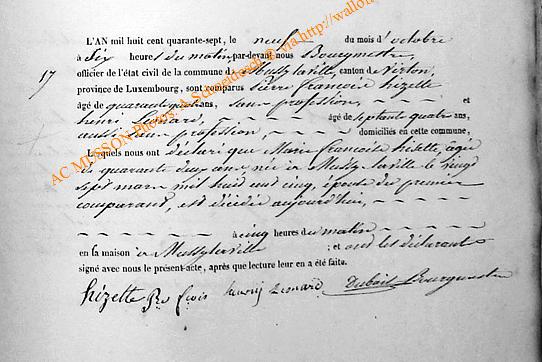 L'AN mil huit cent quarante-sept, le neuf du mois d'octobre
à Six heures du matin, par-devant nous Bourgmestre,
17
officier de l'état civil de la commune de Mussy la ville, canton de Virton,
province de Luxembourg, sont comparus Pierre françois hizette
âgé de quarante ans, sans profession, et
henri Lemard, âgé de septante quatre ans,
aussi sans profession domiciliés en cette commune,
lesquels nous ont déclaré que Marie françoise hizette, agée
de quarante deux ans née à Mussy la ville le vingt
sept mars mil huit cent cinq, épouse du premier
comparant, est décédée aujourd'hui,
à cinq heures du matin
en sa maison à Mussy la ville ; et ont les déclarants
signé avec nous le présent acte, après que lecture leur en a été faite.
hizette henry Lemard Dubois Bourgmestre
AC MUSSON Photos: A. Schneidesch © via http://wallon